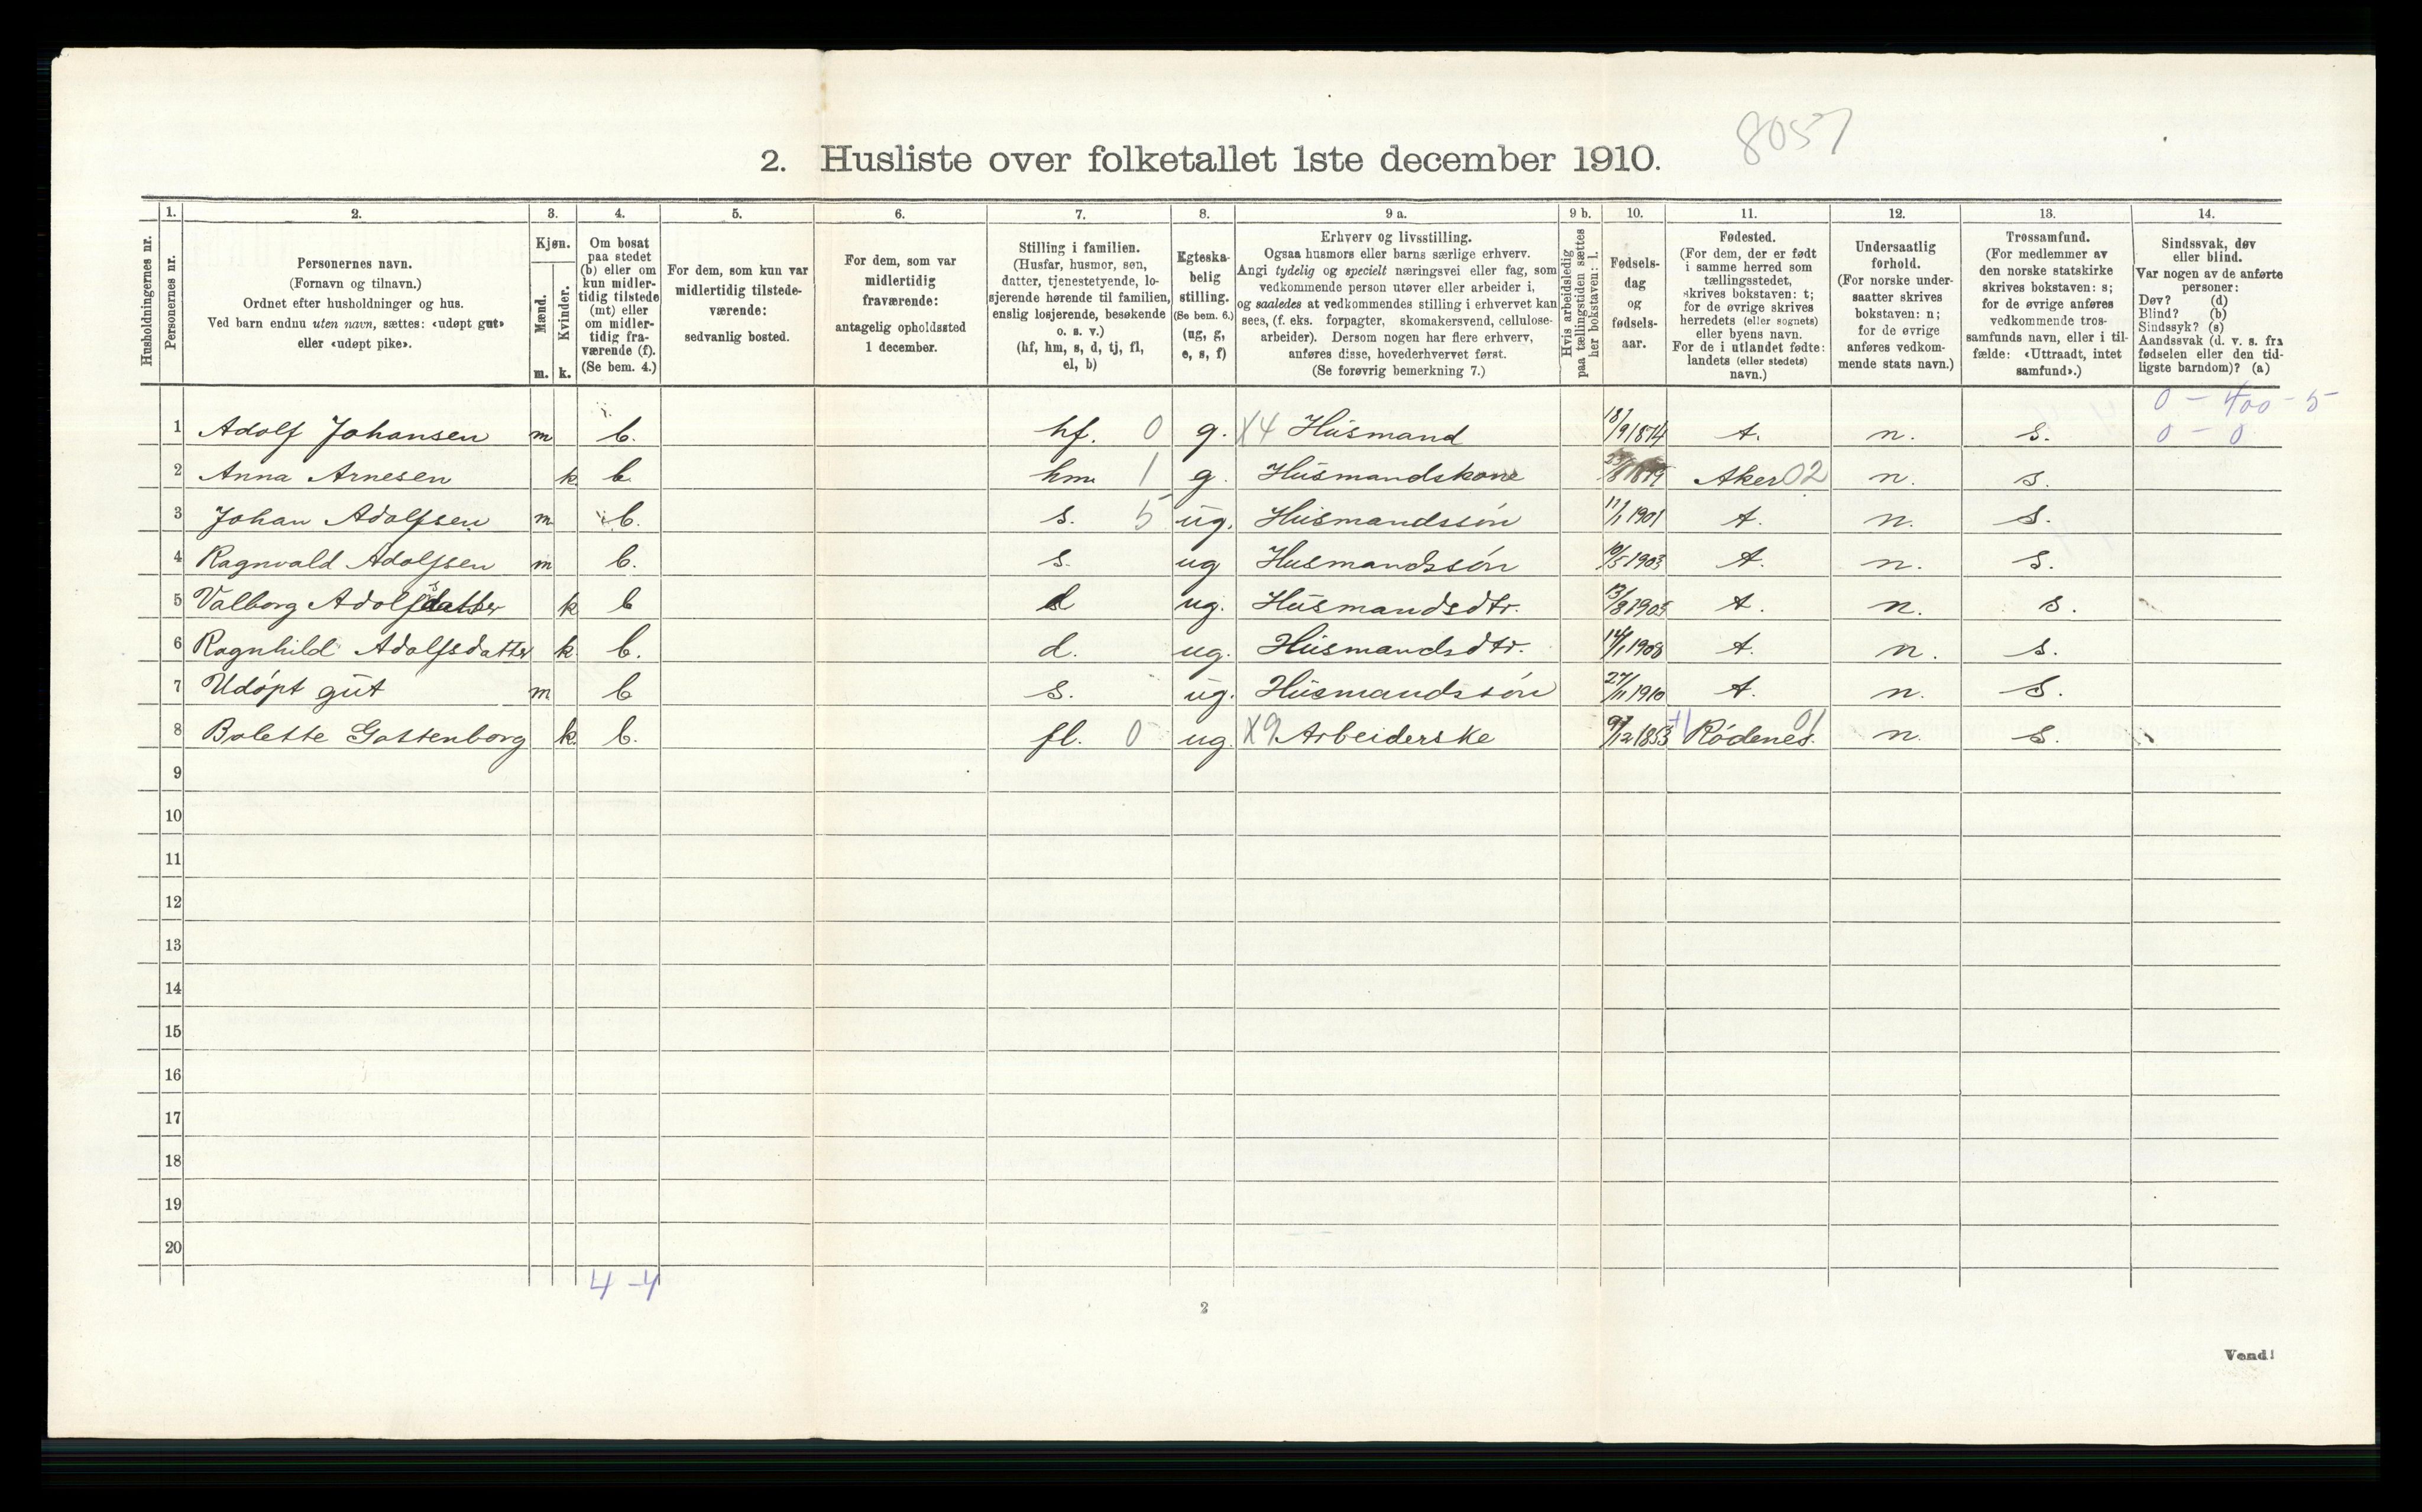 8057
2. Husliste over folketallet 1ste december 1910.
1. 2. 3. 4. 5. 6. 7. 8. 9 a. 9 b. 10. 11. 12. 13. 14.
Husholdningernes nr.
Personernes nr.
Personernes navn.
(Fornavn og tilnavn.)
Ordnet efter husholdninger og hus.
Ved barn endnu uten navn, sættes: «udøpt gut»
eller «udøpt pike».
Kjøn.
Mænd.
Kvinder.
m. k.
Om bosat
paa stedet
(b) eller om
kun midler-
tidig tilstede
(mt) eller
om midler-
tidig fra-
værende (f).
(Se bem. 4.)
For dem, som kun var
midlertidig tilstede-
værende:
sedvanlig bosted.
For dem, som var
midlertidig
fraværende:
antagelig opholdssted
1 december.
Stilling i familien.
(Husfar, husmor, søn,
datter, tjenestetyende, lo-
sjerende hørende til familien,
enslig losjerende, besøkende
o. s. v.)
(hf, hm, s, d, tj, fl,
el, b)
Egteska-
belig
stilling.
(Se bem. 6.)
(ug, g,
e, s, f)
Erhverv og livsstilling.
Ogsaa husmors eller barns særlige erhverv.
Angi tydelig og specielt næringsvei eller fag, som
vedkommende person utøver eller arbeider i,
og saaledes at vedkommendes stilling i erhvervet kan
sees, (f. eks. forpagter, skomakersvend, cellulose-
arbeider). Dersom nogen har flere erhverv,
anføres disse, hovederhvervet først.
(Se forøvrig bemerkning 7.)
Hvis arbeidsledig
paa tællingstiden sættes
her bokstaven: l.
Fødsels-
dag
og
fødsels-
aar.
Fødested.
(For dem, der er født
i samme herred som
tællingsstedet,
skrives bokstaven: t;
for de øvrige skrives
herredets (eller sognets)
eller byens navn.
For de i utlandet fødte:
landets (eller stedets)
navn.)
Undersaatlig
forhold.
(For norske under-
saatter skrives
bokstaven: n;
for de øvrige
anføres vedkom-
mende stats navn.)
Trossamfund.
(For medlemmer av
den norske statskirke
skrives bokstaven: s;
for de øvrige anføres
vedkommende tros-
samfunds navn, eller i til-
fælde: «Uttraadt, intet
samfund».)
Sindssvak, døv
eller blind.
Var nogen av de anførte
personer:
Døv? (d)
Blind? (b)
Sindssyk? (s)
Aandssvak (d. v. s. fra
fødselen eller den tid-
ligste barndom)? (a)
0 - 400 - 5
1 Adolf Johansen m b. hf. 0 g. X4 Húsmand 18/9 1874 t. n. s. 0 - 0
2 Anna Arnesen k b. hm 1 g. Húsmandskone Aker 02 n. s.
3 Johan Adolfsen m b. s. 5 úg. Húsmandssón 11/1 1901 t. n. s.
4 Ragnvald Adolfsen m b. s. ug Husmandssón 10/5 1903 t. n. s.
5 Valborg Adolfsdatter k b d ug. Húsmandsdtr. 13/8 1905 t. n. s.
6 Ragnhild Adolfsdatter k. b. d. ug. Húsmandsdtr. 14/1 1908 t. n. s.
7 Udópt gút m b s. úg. Húsmandssón 27/11 1910 t. n. s.
8 Bolette Gattenborg k. b. fl. 0 ug. X9 Arbeiderske 9/12 1853 Ródenes. 01 n. s.
9
10
11
12
13
14
15
16
17
18
19
20
4 - 4
2
Vend!